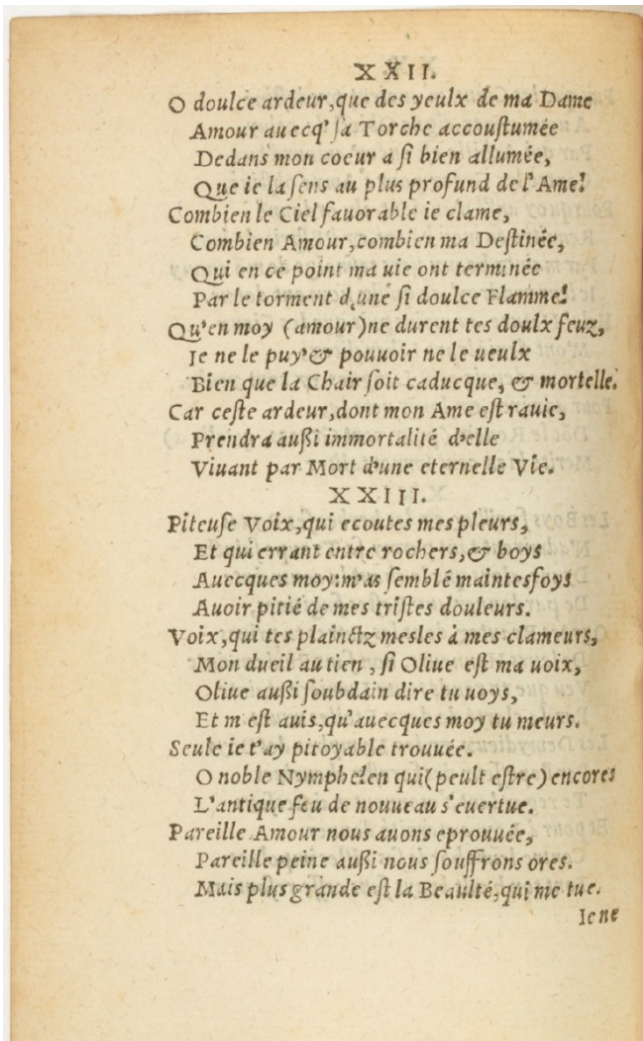 XXII.
O doulce ardeur, que des yeulx de ma Dame
Amour auecq' sa Torche accoustumée
Dedans mon coeur a si bien allumée,
Que ie la sens au plus profund de l'Ame!
Combien le Ciel fauorable ie clame,
Combien Amour, combien ma Destinée,
Qui en ce point ma uie ont terminée
Par le torment d,une si doulce Flamme!
Qu'en moy (amour) ne durent tes doulx feuz,
Je ne le puy' & pouuoir ne le ueulx
Bien que la Chair soit caducque, & mortelle.
Car ceste ardeur, dont mon Ame est rauie,
Prendra außi immortalité d'elle
Viuant par Mort d'une eternelle Vie.
XXIII.
Piteuse Voix, qui ecoutes mes pleurs,
Et qui errant entre rochers, & boys
Auecques moy: m'as semblé maintesfoys
Auoir pitié de mes tristes douleurs.
Voix, qui tes plainctz mesles à mes clameurs,
Mon dueil au tien, si Oliue est ma uoix,
Oliue außi soubdain dire tu uoys,
Et m est auis, qu'auecques moy tu meurs.
Seule ie t'ay pitoyable trouuée.
O noble Nymphe!en qui (peult estre) encores
L'antique feu de nouueau s'euertue.
Pareille Amour nous auons eprouuée,
Pareille peine außi nous souffrons ores.
Mais plus grande est la Beaulté, qui me tue.
Ie ne